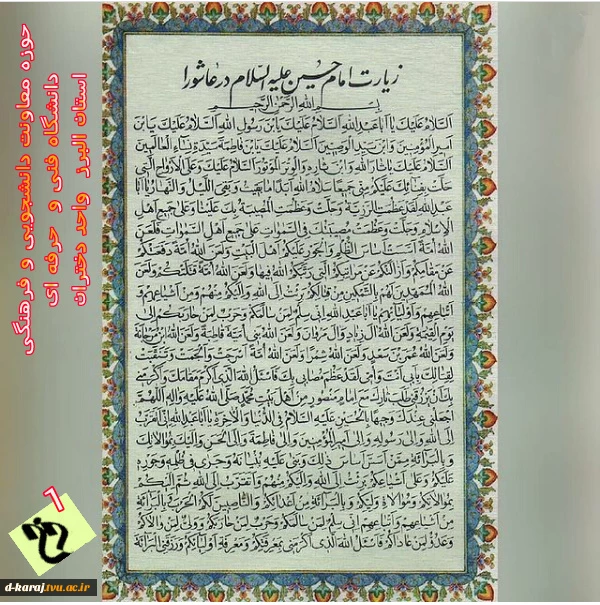 زیارت امام حسین علیه السلام در عاشورا
بسم الله الرحمن الرحیم
اَلسَّلامُ عَلَیْكَ یا اَبا عَبْدِاللهِ اَلسَّلامُ عَلَیْكَ یَابْنَ رَسُولِ اللهِ اَلسَّلامُ عَلَیْكَ یَابْنَ
اَمیرِ الْمُؤْمِنینَ وَابْنَ سَیِّدِ الْوَصِیّینَ اَلسَّلامُ عَلَیْكَ یَابْنَ فاطِمَةَ سَیِّدَةِ نِساءِ الْعالَمینَ
اَلسَّلامُ عَلَیْكَ یا ثارَ اللهِ وَابْنَ ثارِهِ وَالْوِتْرَ الْمَوْتُورَ اَلسَّلامُ عَلَیْكَ وَعَلَی الْاَرْواحِ الَّتی
حَلَّتْ بِفِنائِكَ عَلَیْكُمْ مِنّی جَمیعًا سَلامُ اللهِ اَبَدًا ما بَقیتُ وَبَقِیَ اللَّیْلُ وَالنَّهارُ یا اَبا
عَبْدِاللهِ لَقَدْ عَظُمَتِ الرَّزِیَّةُ وَجَلَّتْ وَعَظُمَتِ الْمُصیبَةُ بِكَ عَلَیْنا وَعَلی جَمیعِ اَهْلِ
الْاِسْلامِ وَجَلَّتْ وَعَظُمَتْ مُصیبَتُكَ فِی السَّمواتِ عَلی جَمیعِ اَهْلِ السَّمواتِ فَلَعَنَ
اللهُ اُمَّةً اَسَّسَتْ اَساسَ الظُّلْمِ وَالْجَوْرِ عَلَیْكُمْ اَهْلَ الْبَیْتِ وَلَعَنَ اللهُ اُمَّةً دَفَعَتْكُمْ
عَنْ مَقامِكُمْ وَاَزالَتْكُمْ عَنْ مَراتِبِكُمُ الَّتی رَتَّبَكُمُ اللهُ فیها وَلَعَنَ اللهُ اُمَّةً قَتَلَتْكُمْ وَلَعَنَ
اللهُ الْمُمَهِّدینَ لَهُمْ بِالتَّمْكینِ مِنْ قِتالِكُمْ بَرِئْتُ اِلَی اللهِ وَاِلَیْكُمْ مِنْهُمْ وَمِنْ اَشْیاعِهِمْ وَ
اَتْباعِهِمْ وَاَوْلِیائِهِمْ یا اَبا عَبْدِاللهِ اِنّی سِلْمٌ لِمَنْ سالَمَكُمْ وَحَرْبٌ لِمَنْ حارَبَكُمْ اِلی
یَوْمِ الْقِیمَةِ وَلَعَنَ اللهُ آلَ زِیادٍ وَآلَ مَرْوانَ وَلَعَنَ اللهُ بَنی اُمَیَّةَ قاطِبَةً وَلَعَنَ اللهُ ابْنَ مَرْجانَةَ
وَلَعَنَ اللهُ عُمَرَ بْنَ سَعْدٍ وَلَعَنَ اللهُ شِمْرًا وَلَعَنَ اللهُ اُمَّةً اَسْرَجَتْ وَاَلْجَمَتْ وَتَنَقَّبَتْ
لِقِتالِكَ بِاَبی اَنْتَ وَاُمّی لَقَدْ عَظُمَ مُصابی بِكَ فَاَسْئَلُ اللهَ الَّذی اَكْرَمَ مَقامَكَ وَاَكْرَمَنی
بِكَ اَنْ یَرْزُقَنی طَلَبَ ثارِكَ مَعَ اِمامٍ مَنْصُورٍ مِنْ اَهْلِ بَیْتِ مُحَمَّدٍ صَلَّی اللهُ عَلَیْهِ وَآلِهِ اَللّهُمَّ
اجْعَلْنی عِنْدَكَ وَجیهًا بِالْحُسَیْنِ عَلَیْهِ السَّلامُ فِی الدُّنْیا وَالْآخِرَةِ یا اَبا عَبْدِاللهِ اِنّی اَتَقَرَّبُ
اِلَی اللهِ وَاِلی رَسُولِهِ وَاِلی اَمیرِ الْمُؤْمِنینَ وَاِلی فاطِمَةَ وَاِلَی الْحَسَنِ وَاِلَیْكَ بِمُوالاتِكَ
وَبِالْبَرائَةِ مِمَّنْ اَسَّسَ اَساسَ ذلِكَ وَبَنی عَلَیْهِ بُنْیانَهُ وَجَری فی ظُلْمِهِ وَجَوْرِهِ
عَلَیْكُمْ وَعَلی اَشْیاعِكُمْ بَرِئْتُ اِلَی اللهِ وَاِلَیْكُمْ مِنْهُمْ وَاَتَقَرَّبُ اِلَی اللهِ ثُمَّ اِلَیْكُمْ
بِمُوالاتِكُمْ وَمُوالاةِ وَلِیِّكُمْ وَبِالْبَرائَةِ مِنْ اَعْدائِكُمْ وَالنّاصِبینَ لَكُمُ الْحَرْبَ وَبِالْبَرائَةِ
مِنْ اَشْیاعِهِمْ وَاَتْباعِهِمْ اِنّی سِلْمٌ لِمَنْ سالَمَكُمْ وَحَرْبٌ لِمَنْ حارَبَكُمْ وَوَلِیٌّ لِمَنْ والاكُمْ
وَعَدُوٌّ لِمَنْ عاداكُمْ فَاَسْئَلُ اللهَ الَّذی اَكْرَمَنی بِمَعْرِفَتِكُمْ وَمَعْرِفَةِ اَوْلِیائِكُمْ وَرَزَقَنِی الْبَرائَةَ
حوزه معاونت دانشجویی و فرهنگی
دانشگاه فنی و حرفه ای
استان البرز واحد دختران
1
d-karaj.tvu.ac.ir